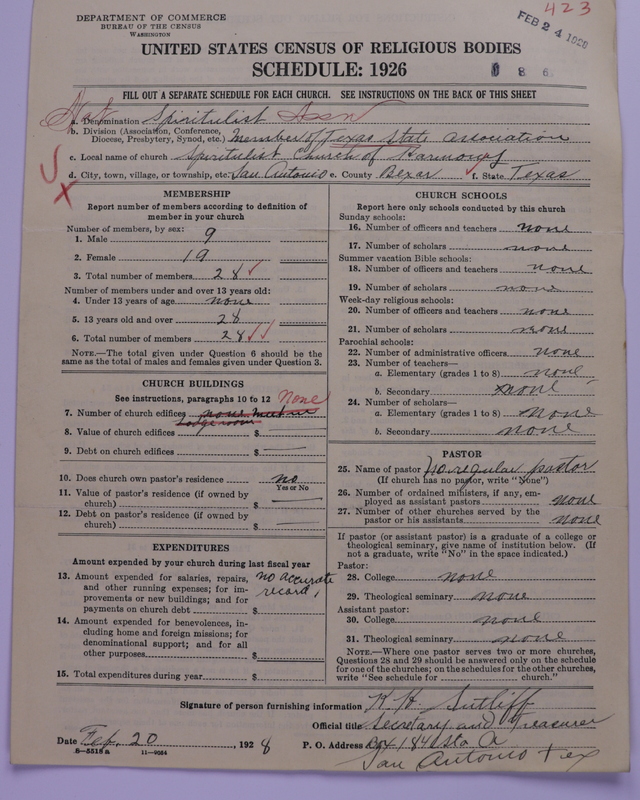 423
DEPARTMENT OF COMMERCE
BUREAU OF THE CENSUS
WASHINGTON
FEB 24 1928
UNITED STATES CENSUS OF RELIGIOUS BODIES
SCHEDULE: 1926
FILL OUT A SEPARATE SCHEDULE FOR EACH CHURCH. SEE INSTRUCTIONS ON THE BACK OF THIS SHEET
a. Denomination Spiritulist Assn
b. Division (Association, Conference,
Diocese, Presbytery, Synod, etc.) member of Texas State association
c. Local name of church Spiritulist Church of Harmony
d. City, town, village, or township, etc. San Antonio e. County Bexar f. State Texas
MEMBERSHIP
Report number of members according to definition of
member in your church
Number of members, by sex:
1. Male 9
2. Female 19
3. Total number of members 28
Number of members under and over 13 years old:
4. Under 13 years of age none
5. 13 years old and over 28
6. Total number of members 28
NOTE.—The total given under Question 6 should be the
same as the total of males and females given under Question 3.
CHURCH BUILDINGS
See instructions, paragraphs 10 to 12 none
7. Number of church edifices none
Lodge room
8. Value of church edifices $
9. Debt on church edifices $
10. Does church own pastor's residence no
Yes or No
11. Value of pastor's residence (if owned by
church) $
12. Debt on pastor's residence (if owned by
church) $
EXPENDITURES
Amount expended by your church during last fiscal year
13. Amount expended for salaries, repairs, no accurate
and other running expenses; for im- record,
provements or new buildings; and for
payments on church debt $
14. Amount expended for benevolences, in-
cluding home and foreign missions; for
denominational support; and for all
other purposes $
15. Total expenditures during year $
CHURCH SCHOOLS
Report here only schools conducted by this church
Sunday schools:
16. Number of officers and teachers none
17. Number of scholars none
Summer vacation Bible schools:
18. Number of officers and teachers none
19. Number of scholars none
Week-day religious schools:
20. Number of officers and teachers none
21. Number of scholars none
Parochial schools:
22. Number of administrative officers none
23. Number of teachers—
a. Elementary (grades 1 to 8) none
b. Secondary none
24. Number of scholars—
a. Elementary (grades 1 to 8) none
b. Secondary none
PASTOR
25. Name of pastor No regular pastor
(If church has no pastor, write "None")
26. Number of ordained ministers, if any, em-
ployed as assistant pastors none
27. Number of other churches served by the
pastor or his assistants none
If pastor (or assistant pastor) is a graduate of a college or
theological seminary, give name of institution below. (If
not a graduate, write "No" in the space indicated.)
Pastor:
28. College none
29. Theological seminary none
Assistant pastor:
30. College none
31. Theological seminary none
NOTE.—Where one pastor serves two or more churches,
Questions 28 and 29 should be answered only on the schedule
for one of the churches; on the schedules for the other churches,
write "See schedule for church."
Signature of person furnishing information K. H. Sutliff
Official title Secretary and Treasurer
Date Feb. 20, 1928 P. O. Address Box 1840 Sta A
San Antonio Tex
8—5518 a 11—9064